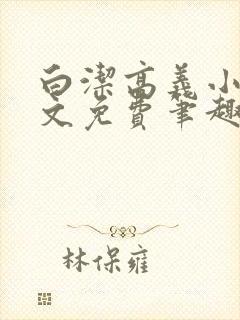 白潔高義小
文免費筆趣
林保雍